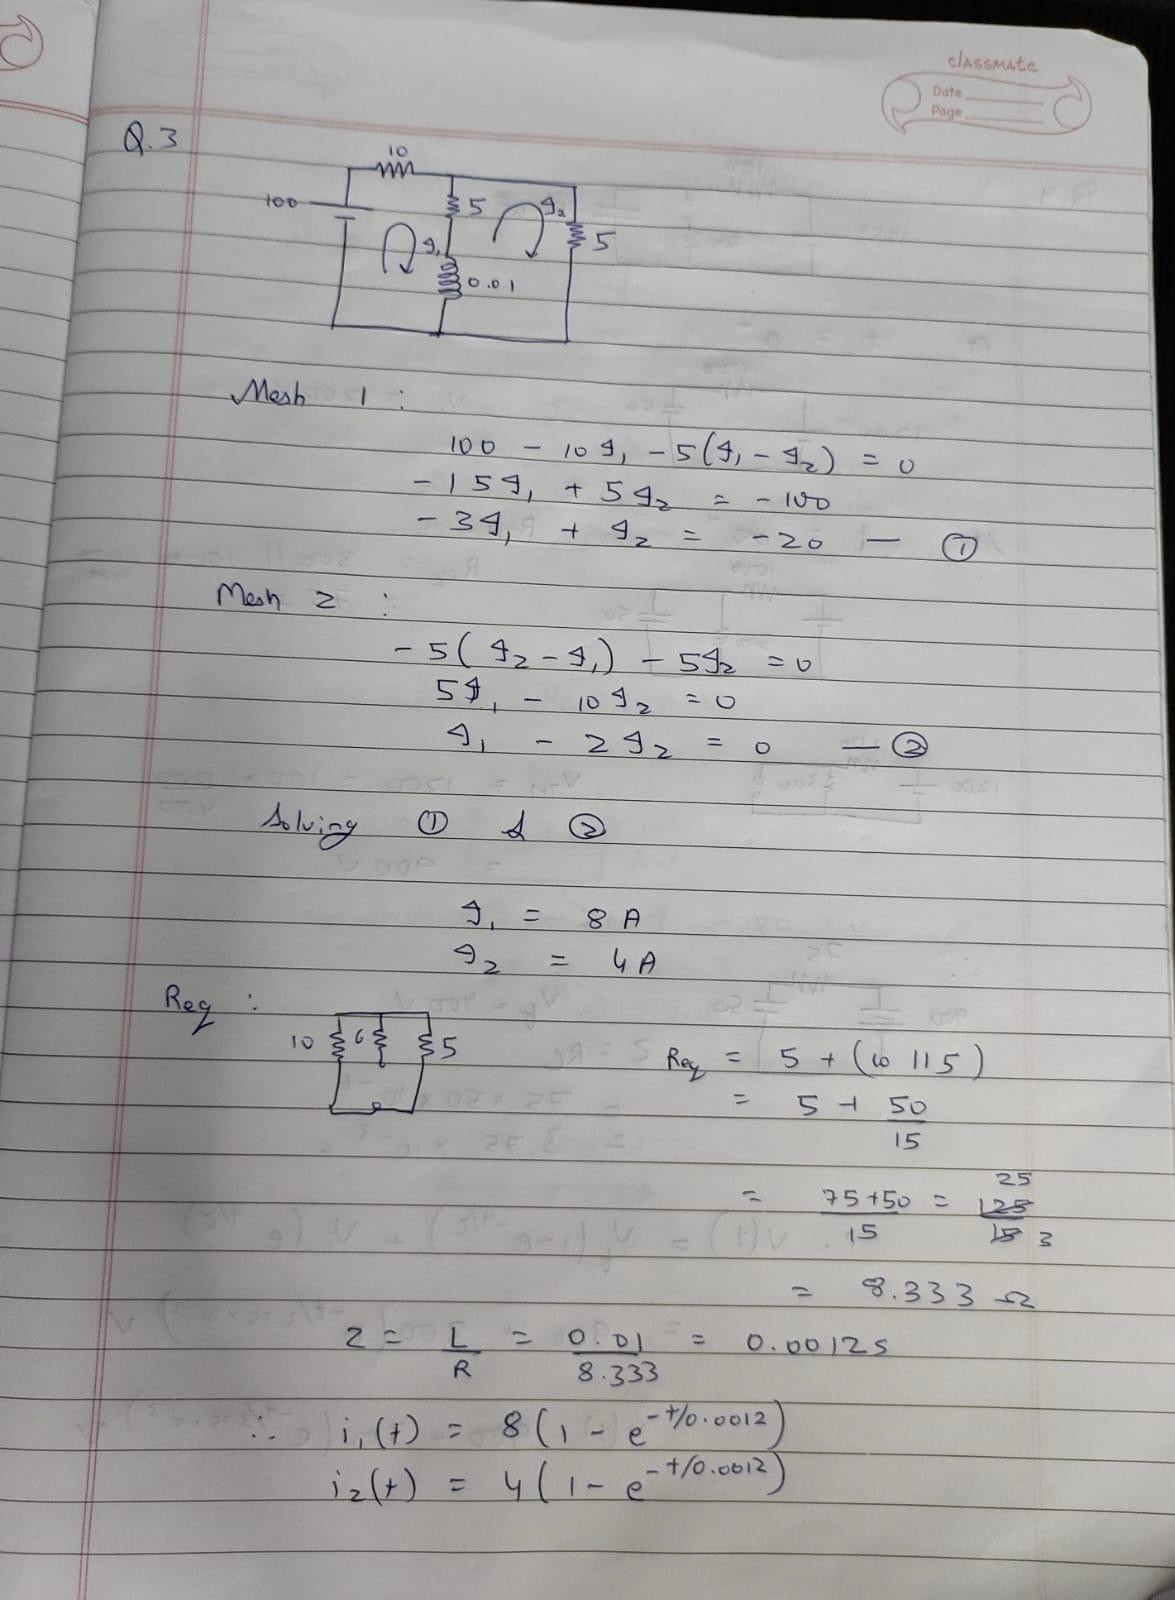 classmate
Date
Page
Q.3
10
100
5
I2
5
I1
0.01
Mesh 1 :
100 - 10I1 - 5(I1 - I2) = 0
-15I1 + 5I2 = -100
-3I1 + I2 = -20 — ①
Mesh 2 :
-5(I2 - I1) - 5I2 = 0
5I1 - 10I2 = 0
I1 - 2I2 = 0 — ②
Solving ① & ②
I1 = 8A
I2 = 4A
Req :
10 6 5
Req = 5 + (10 || 5)
= 5 + 50/15
= 75+50/15 = 125/15 25/3
= 8.333 Ω
τ = L/R = 0.01/8.333 = 0.0012s
∴ i1(t) = 8(1 - e^-t/0.0012)
i2(t) = 4(1 - e^-t/0.0012)